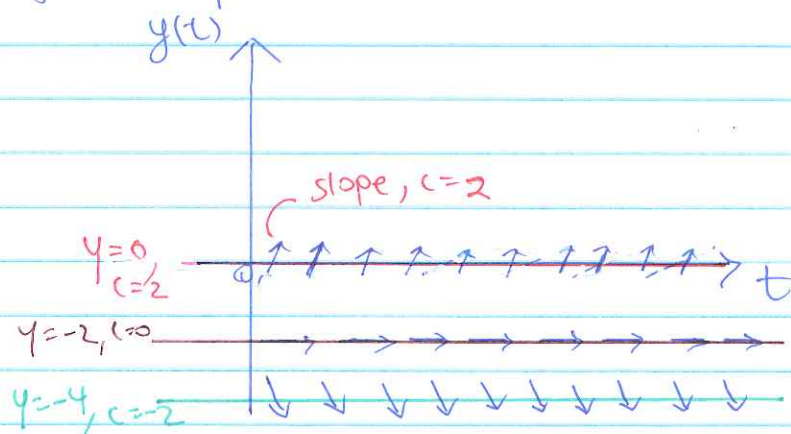 y(t)
slope, c=2
y=0,
c=2
0
t
y=-2, c=0
y=-4, c=-2